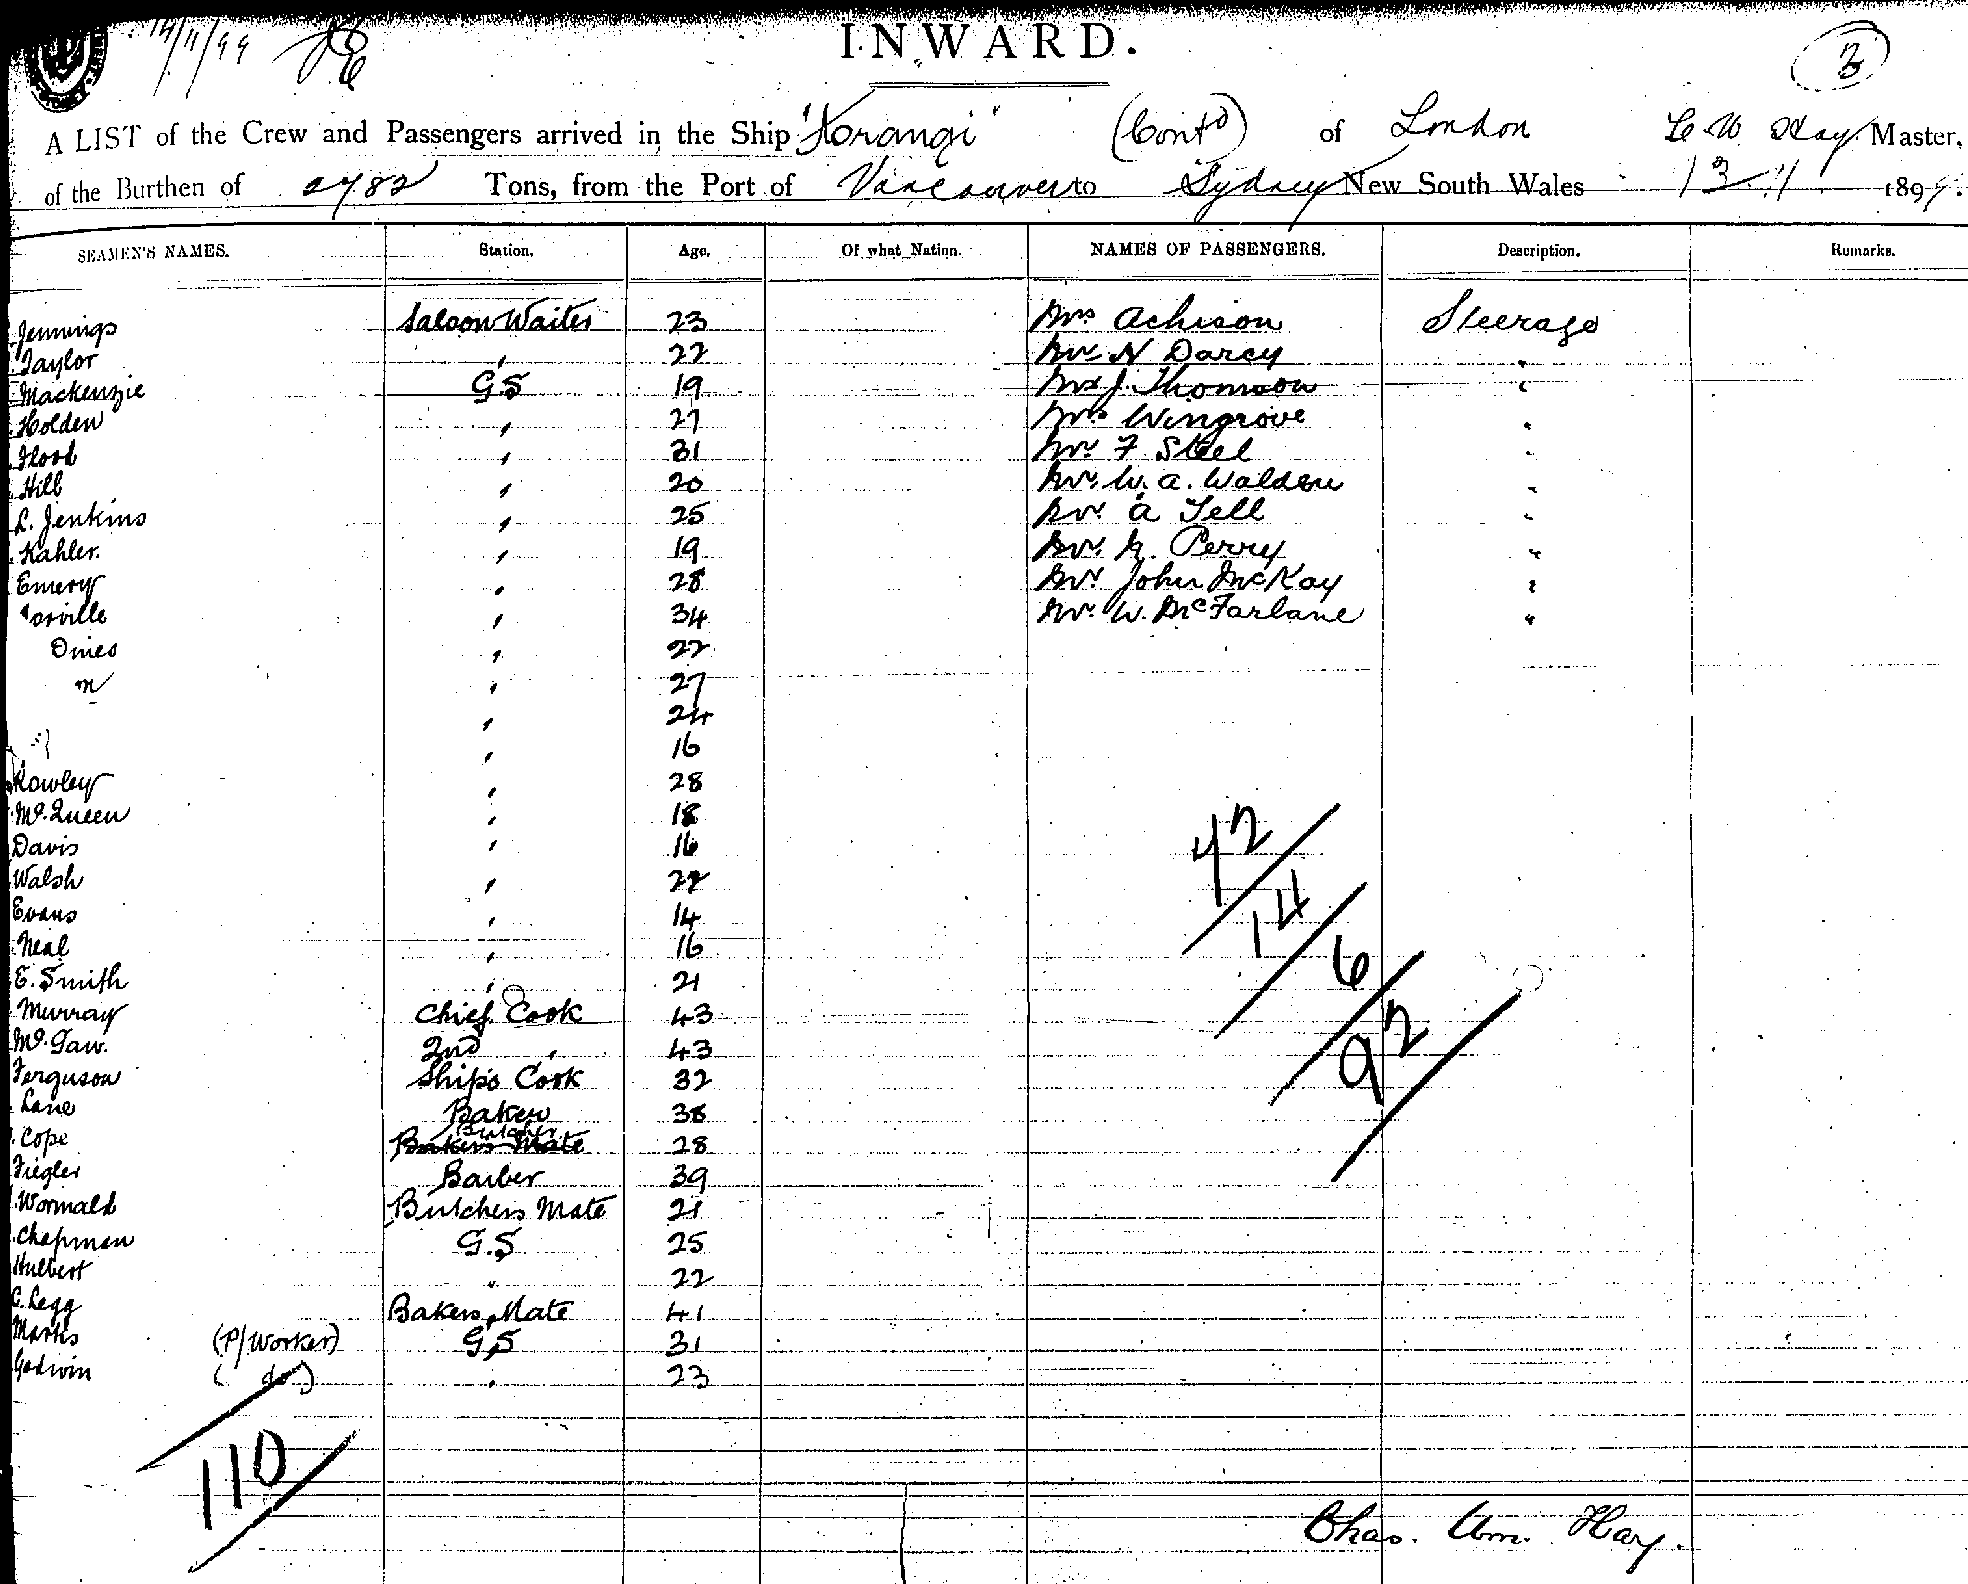 14/11/99
INWARD.
3
A LIST of the Crew and Passengers arrived in the Ship "Aorangi" (Contd) of London C. W. Hay Master,
of the Burthen of 2782 Tons, from the Port of Vancouver to Sydney New South Wales 13.11. 1899.
SEAMEN'S NAMES. Station. Age. Of what Nation. NAMES OF PASSENGERS. Description. Remarks.
Jennings Saloon Waiter 23 Mrs Achison Steerage
Taylor " 22 Mr N Darcy "
Mackenzie G.S 19 Mr J. Thomson "
Holden " 27 Mrs Wingrove "
Flood " 31 Mr F Steel "
Hill " 20 Mr. W. A. Walden "
L. Jenkins " 25 Mr. A Tell "
Kahler. " 19 Mr. Perry "
Emery " 28 Mr John McKay "
orville " 34 Mr. W. McFarlane "
Dines " 22
m " 27
" 24
" 16
Rowley " 28
McQueen " 18
Davis " 16
Walsh " 22
Evans " 14
Neal " 16
E. Smith " 21
Murray Chief Cook 43
McGaw. 2nd " 43
Ferguson Ships Cook 32
Lane Baker 38
Cope Bakers Mate Butcher 28
Fiegler Barber 39
Wormald Butchers Mate 21
Chapman G.S 25
Hulbert " 22
C. Legg Bakers Mate 41
Marks (P/Worker) G.S 31
Godwin ( do ) " 23
72
14
6
92
110
Chas. Wm. Hay.